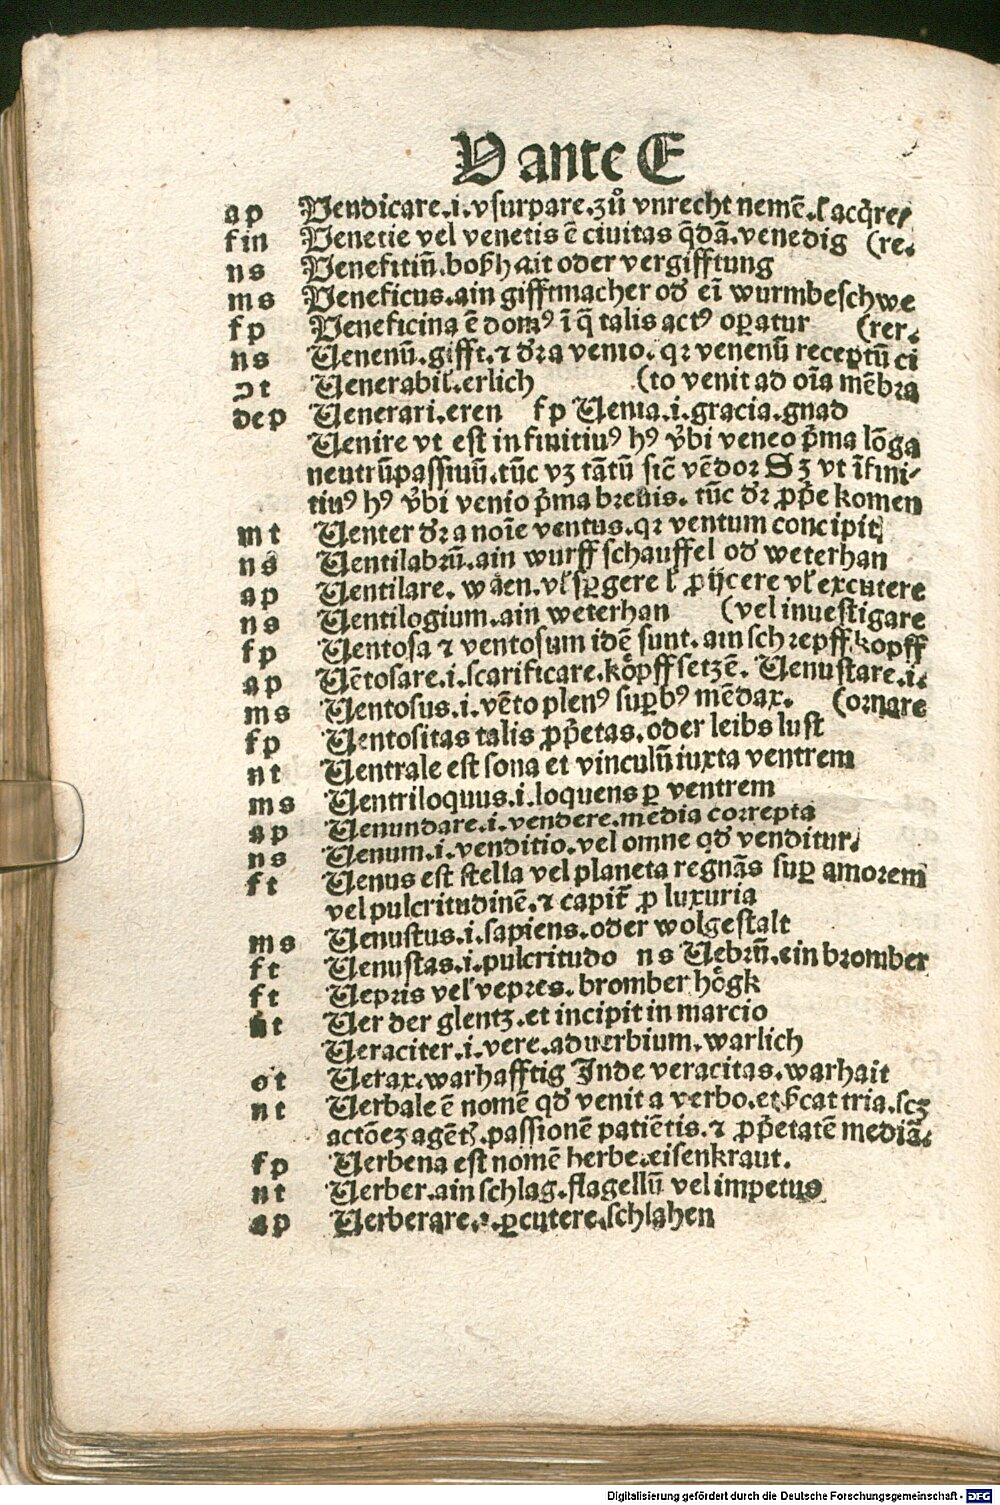 V ante E
ap Vendicare.i.vsurpare.zů vnrecht nemē.ł acq̄re/
fin Venetie vel venetis ē ciuitas q̄dā.venedig (re.
ns Venefitiū.boßhait oder vergifftung
ms Veneficus.ain gifftmacher od̕ eī wurmbeschwe
fp Veneficina ē domꝰ ī q̄ talis actꝰ oꝑatur (rer.
ns Uenenū.gifft.⁊ dꝛ̄ a venio.qꝛ venenū receptū ci
ot Uenerabił.erlich (to venit ad oīa mēbꝛa
dep Uenerari.eren fp Uenia.i.gracia.gnad
Uenire vt est infinitiuꝰ hꝰ v̄bi veneo p̄ma lōga
neutrūpassiuū.tūc vꝫ tātū sicē vēdoꝛ Sꝫ vt īfini-
tiuꝰ hꝰ v̄bi venio p̄ma breuis.tūc dꝛ̄ ꝓp̄e komen
mt Uenter dꝛ̄ a noīe ventus.qꝛ ventum concipit
ns Uentilabꝛū.ain wurffschauffel od̕ weterhan
ap Uentilare.wåen.vł spꝑgere ł ꝓijcere vł excutere
ns Uentilogium.ain weterhan (vel inuestigare
fp Uentosa ⁊ ventosum idē sunt.ain schꝛepffkopff
ap Uētosare.i.scarificare.kǒpff setzē. Uenustare.i.
ms Uentosus.i.vēto plenꝰ suꝑbꝰ mēdax. (oꝛnare
fp Uentositas talis ꝓp̄etas.oder leibs lust
nt Uentrale est sona et vinculū iuxta ventrem
ms Uentriloquus.i.loquens ꝑ ventrem
ap Uenundare.i.vendere.media coꝛrepta
ns Uenum.i.venditio.vel omne qd̕ venditur.
ft Uenus est stella vel planeta regnās suꝑ amoꝛem
vel pulcritudinē.⁊ capit̄ ꝓ luxuria
ms Uenustus.i.sapiens.oder wolgestalt
ft Uenustas.i.pulcritudo ns Uebꝛū.ein bꝛomber
ft Uepris vel vepres.bꝛomber hǒgk
nt Uer der glentz.et incipit in marcio
Ueraciter.i.vere.aduerbium.warlich
ot Uerax.warhafftig Inde veracitas.warhait
nt Uerbale ē nomē qd̕ venit a verbo.et s̄cat tria.scꝫ
actōeꝫ agētꝭ.passionē patiētis.⁊ ꝓp̄etatē mediā.
fp Uerbena est nomē herbe.eisenkraut.
nt Uerber.ain schlag.flagellū vel impetus
ap Uerberare.i.ꝑcutere.schlahen
Digitalisierung gefördert durch die Deutsche Forschungsgemeinschaft - DFG